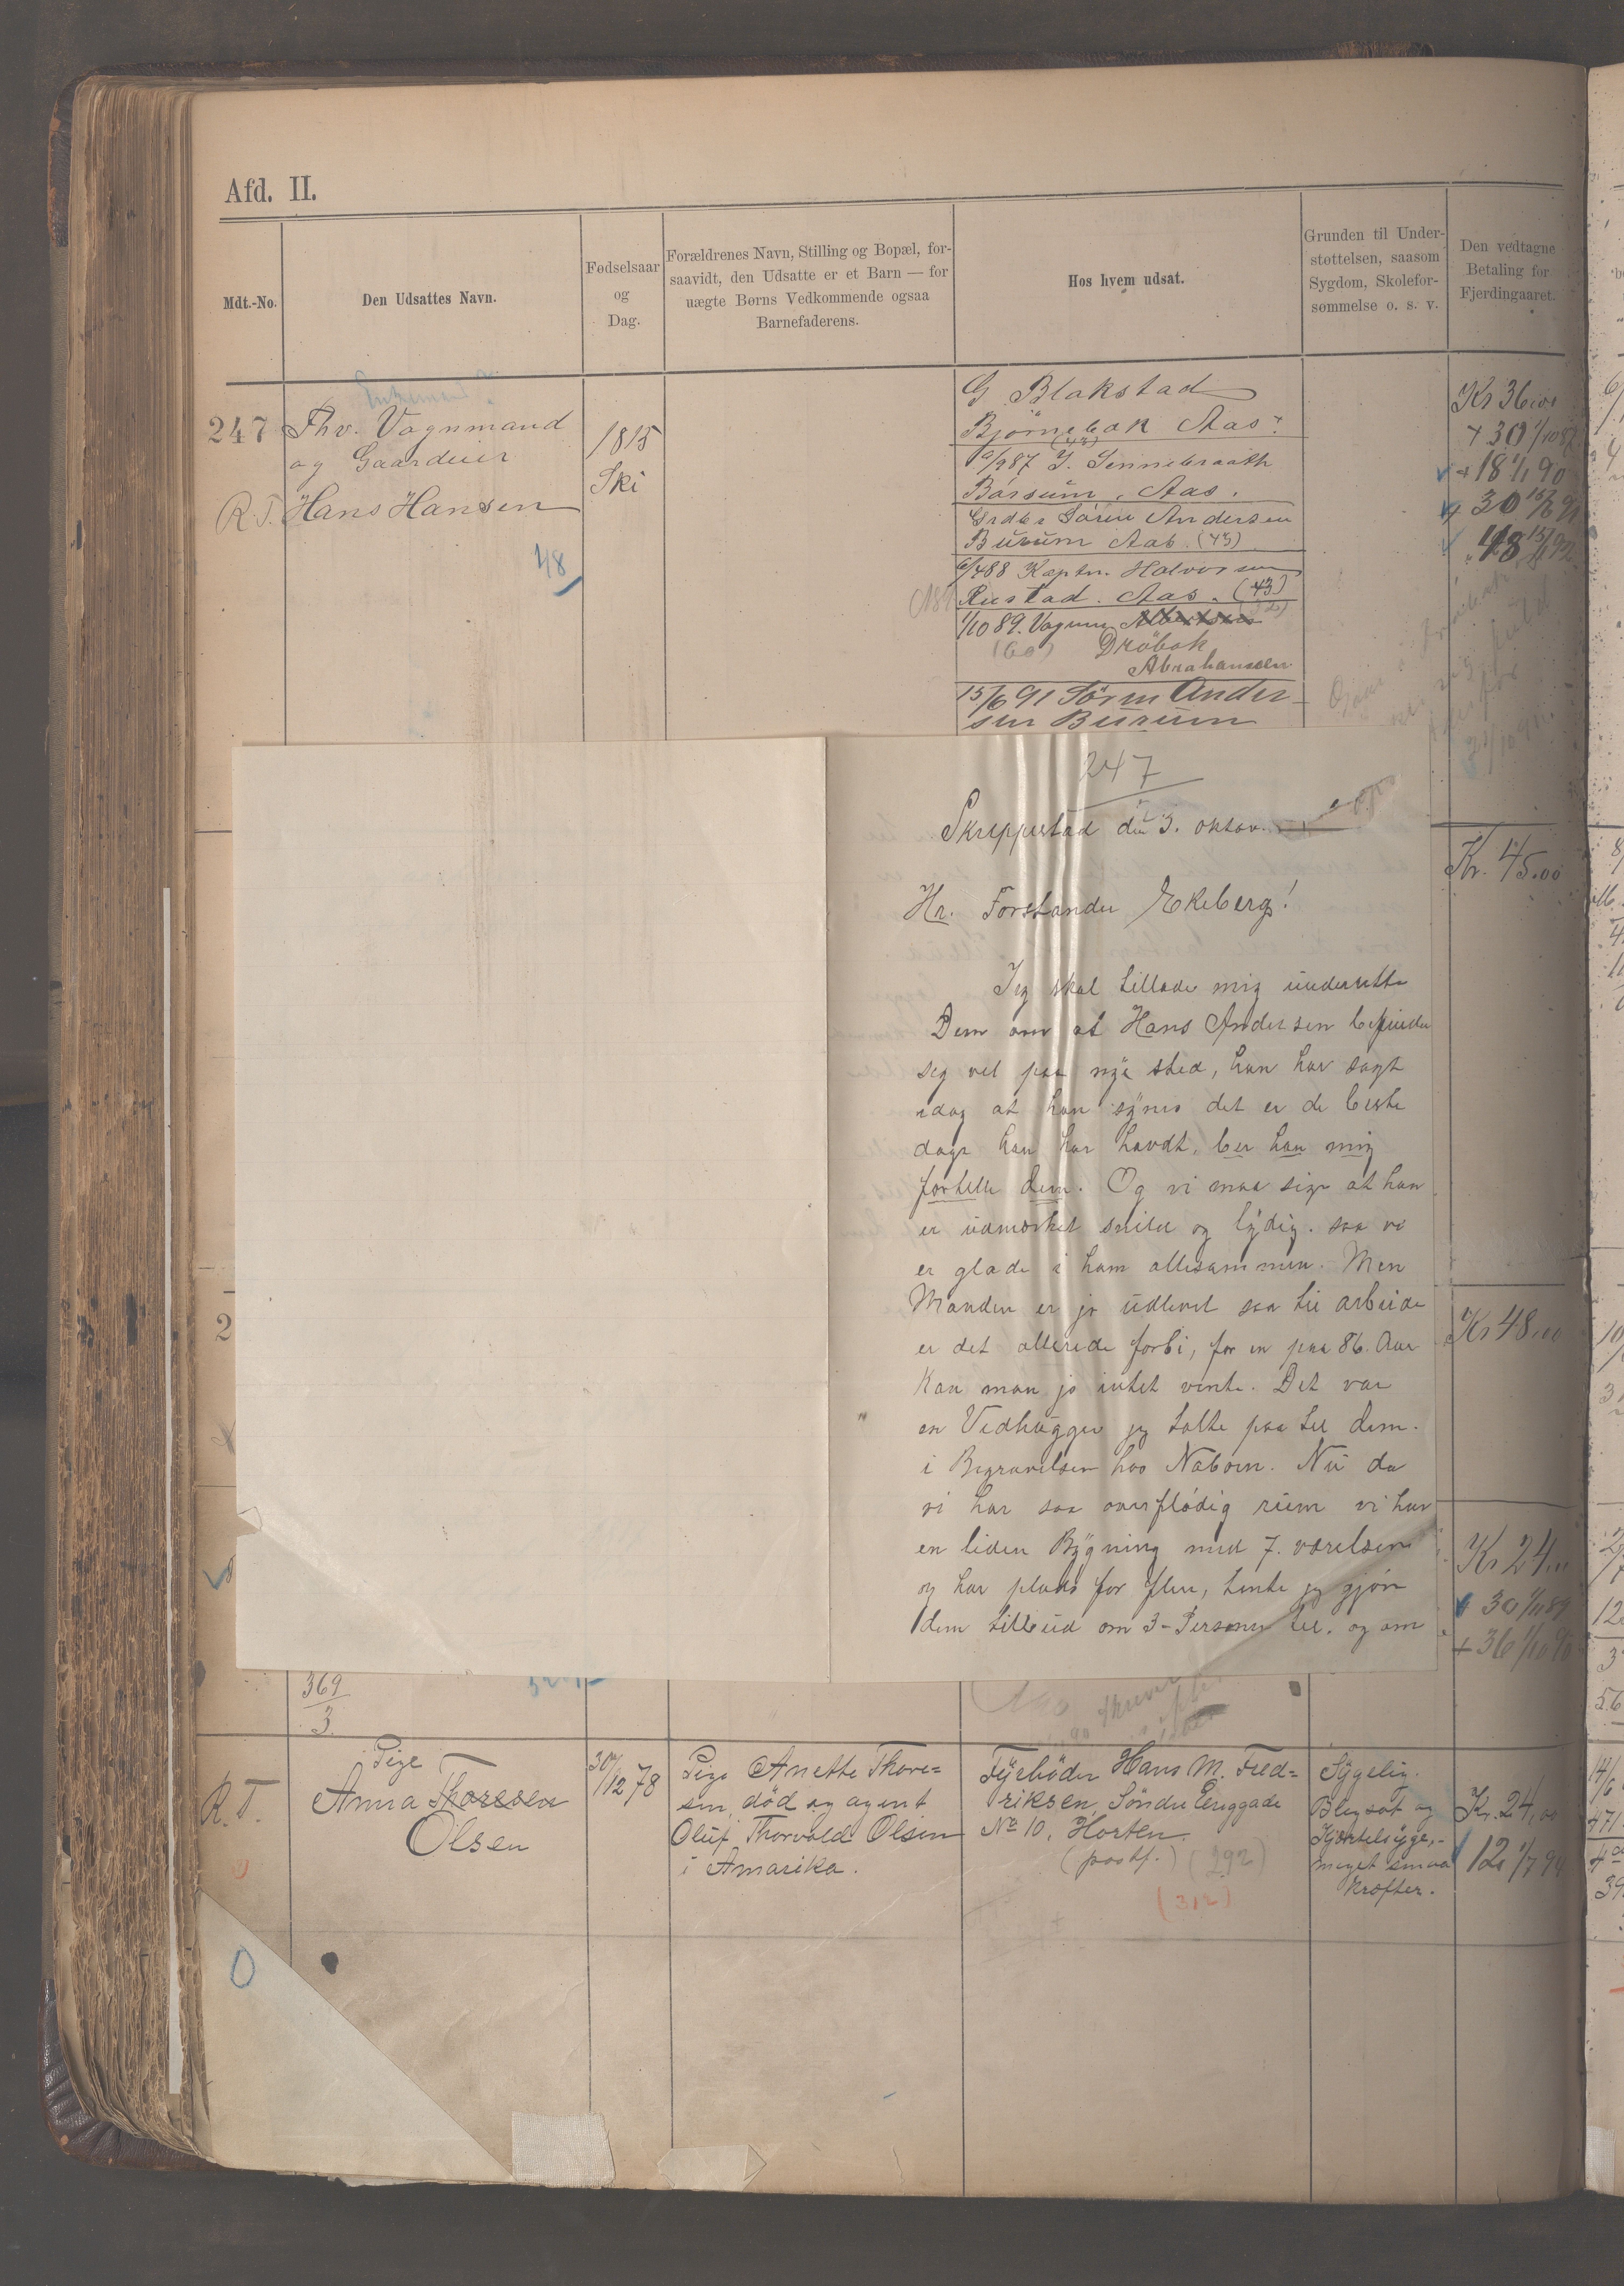 Afd. II.
Mdt.-No.
Den Udsattes Navn.
Fødselsaar
og
Dag.
Forældrenes Navn, Stilling og Bopæl, for-
saavidt, den Udsatte er et Barn — for
uægte Børns Vedkommende ogsaa
Barnefaderens.
Hos hvem udsat.
Grunden til Under-
støttelsen, saasom
Sygdom, Skolefor-
sømmelse o. s. v.
Den vedtagne
Betaling for
Fjerdingaaret.
247
Fhv. Vognmand
og Gaardeier
R.T. Hans Hansen
48
1815
Ski
G Blakstad
Bjørnebak Aas
(43)
Bårsum, Aas.
Grdbr Sören Andersen
Burum Aas. (43)
6/488 Kaptn. Halvorsen
Rustad. Aas. (43)
1/10 89. Vognm.
(60) Dröbak
Abrahamsen
15/6 91 Sörен Ander-
sen Burum
Kr 36,00
+ 30 1/10 87
+ 18 1/1 90
+ 30 15/6 91
48 15/11 92
247
Skreppestad den 3. oktov.
Hr. Forstander Ekeberg!
Jeg skal tillade mig underrette
Dem om at Hans Andersen befinder
seg vel paa nye sted, han har sagt
idag at han synes det er de beste
dage han har havdt, ber han mig
fortelle dem. Og vi maa sige at han
er udmærket snild og lydig. saa vi
er glade i ham allesammen. Men
Manden er jo udlevet saa til arbeide
er det allerede forbi, for en paa 86. Aar
kan man jo intet vente. Det var
en Vedhugger jeg talte paa til dem.
i Begravelsen hos Naboen. Nu da
vi har saa overflødig rum vi har
en liden Bygning med 7. værelser
og har plads for flere, tenkte jeg gjøre
dem tilbud om 3-Personer til. og om
Kr. 45.00
2
Kr 48.00
Kr 24.00
30 1/11 89
+ 36 1/10 90
369
3
R.T.
Pige
Anna Thoresen
Olsen
30/12 78
Pige Anette Thore=
sen, död og agent
Oluf Thorvald Olsen
i Amarika.
Fyrböder Hans M. Fred=
riksen, Søndre Enggade
No 10, Horten.
(postf.) (292)
(312)
Sygelig.
Blegsot og
Kjertelsyge,-
meget smaa
kræfter.
Kr. 24,00
12 1/7 94
0